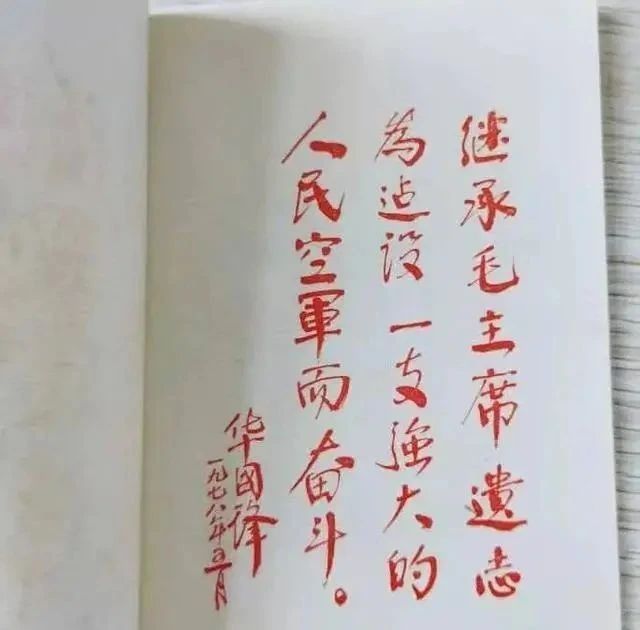 继承毛主席遺志
為迠设一支強大的
人民空軍而奋斗。
华國锋
一九七八年五月